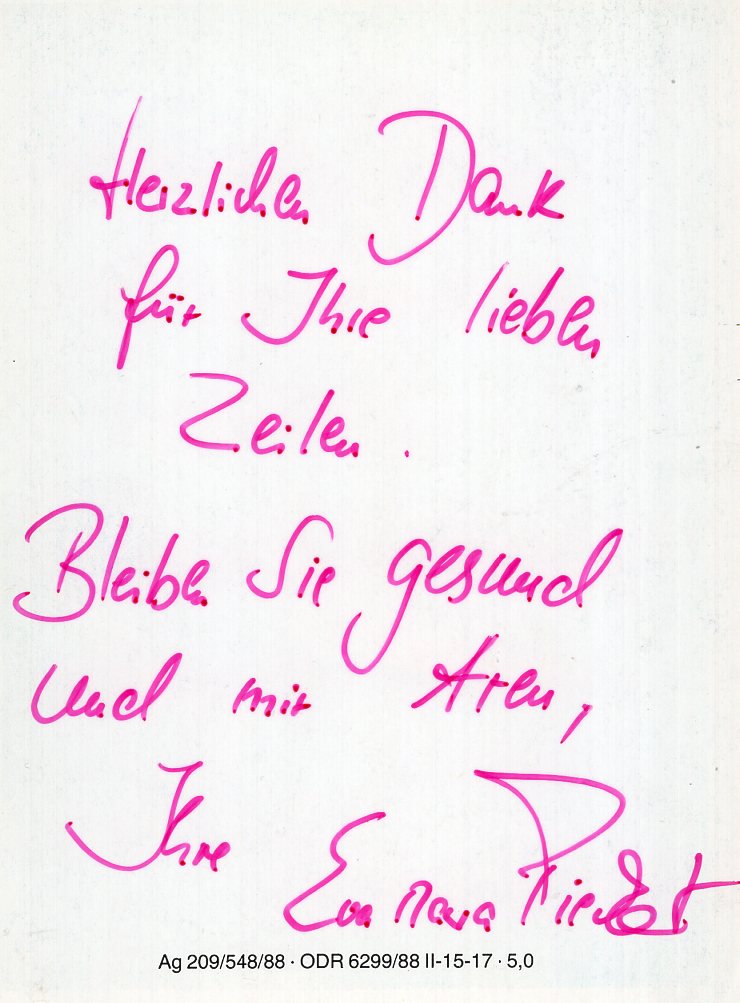 Herzlichen Dank
für Ihre lieben
Zeilen.
Bleiben Sie gesund
und mir treu,
Ihre
Eva Maria Pieckert
Ag 209/548/88 · ODR 6299/88 II-15-17 · 5,0